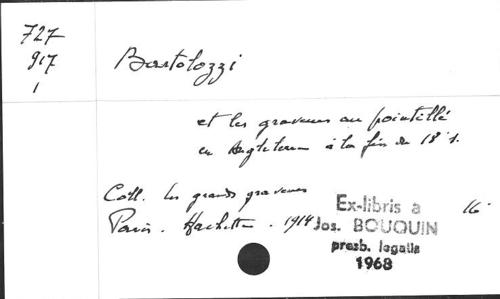 727
917
1
Bartolozzi
et les graveurs au pointillé
en Angleterre à la fin du 18e s.
Coll. Les grands graveurs
Paris. Hachette. 1914
16°
Ex-libris a
Jos. BOUQUIN
presb. legatis
1968